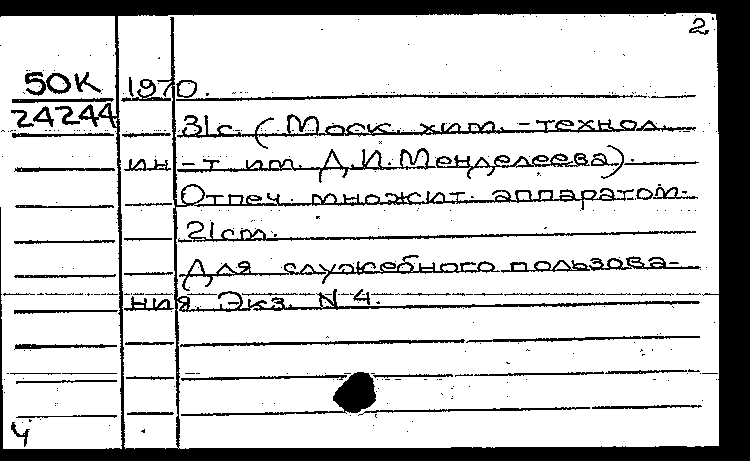 2
50К 1970.
24244
31с. (Моск. хим.-технол.
ин-т им. Д.И.Менделеева).
Отпеч. множит. аппаратом.
21cm.
Для служебного пользова-
ния. Экз. N 4.
Ч